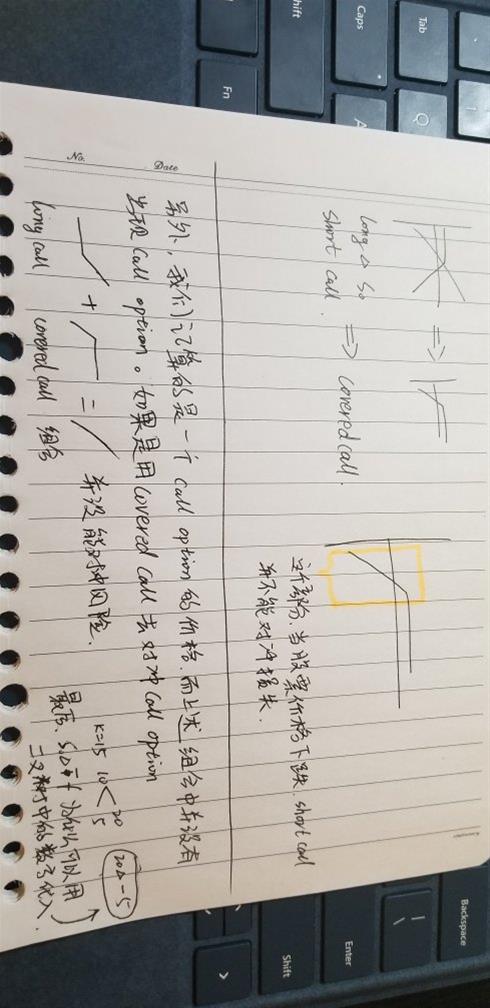 long △ S₀
short call. => covered call.
这个部分,当股票价格下跌, short call
并不能对冲损失.
Date
No.
另外, 我们计算的是一个 call option 的价格. 而上述组合中并没有
出现 call option。如果是用 covered call 去对冲 call option
+ = 并没能对冲风险.
long call covered call 组合
K=15 10 < 20 5 20△-5
最后, S₀△ 为什么可以用
二叉树中的数字代入.
Tab
Caps
Shift
Fn
Q
A
Backspace
Enter
Shift
\
|
>